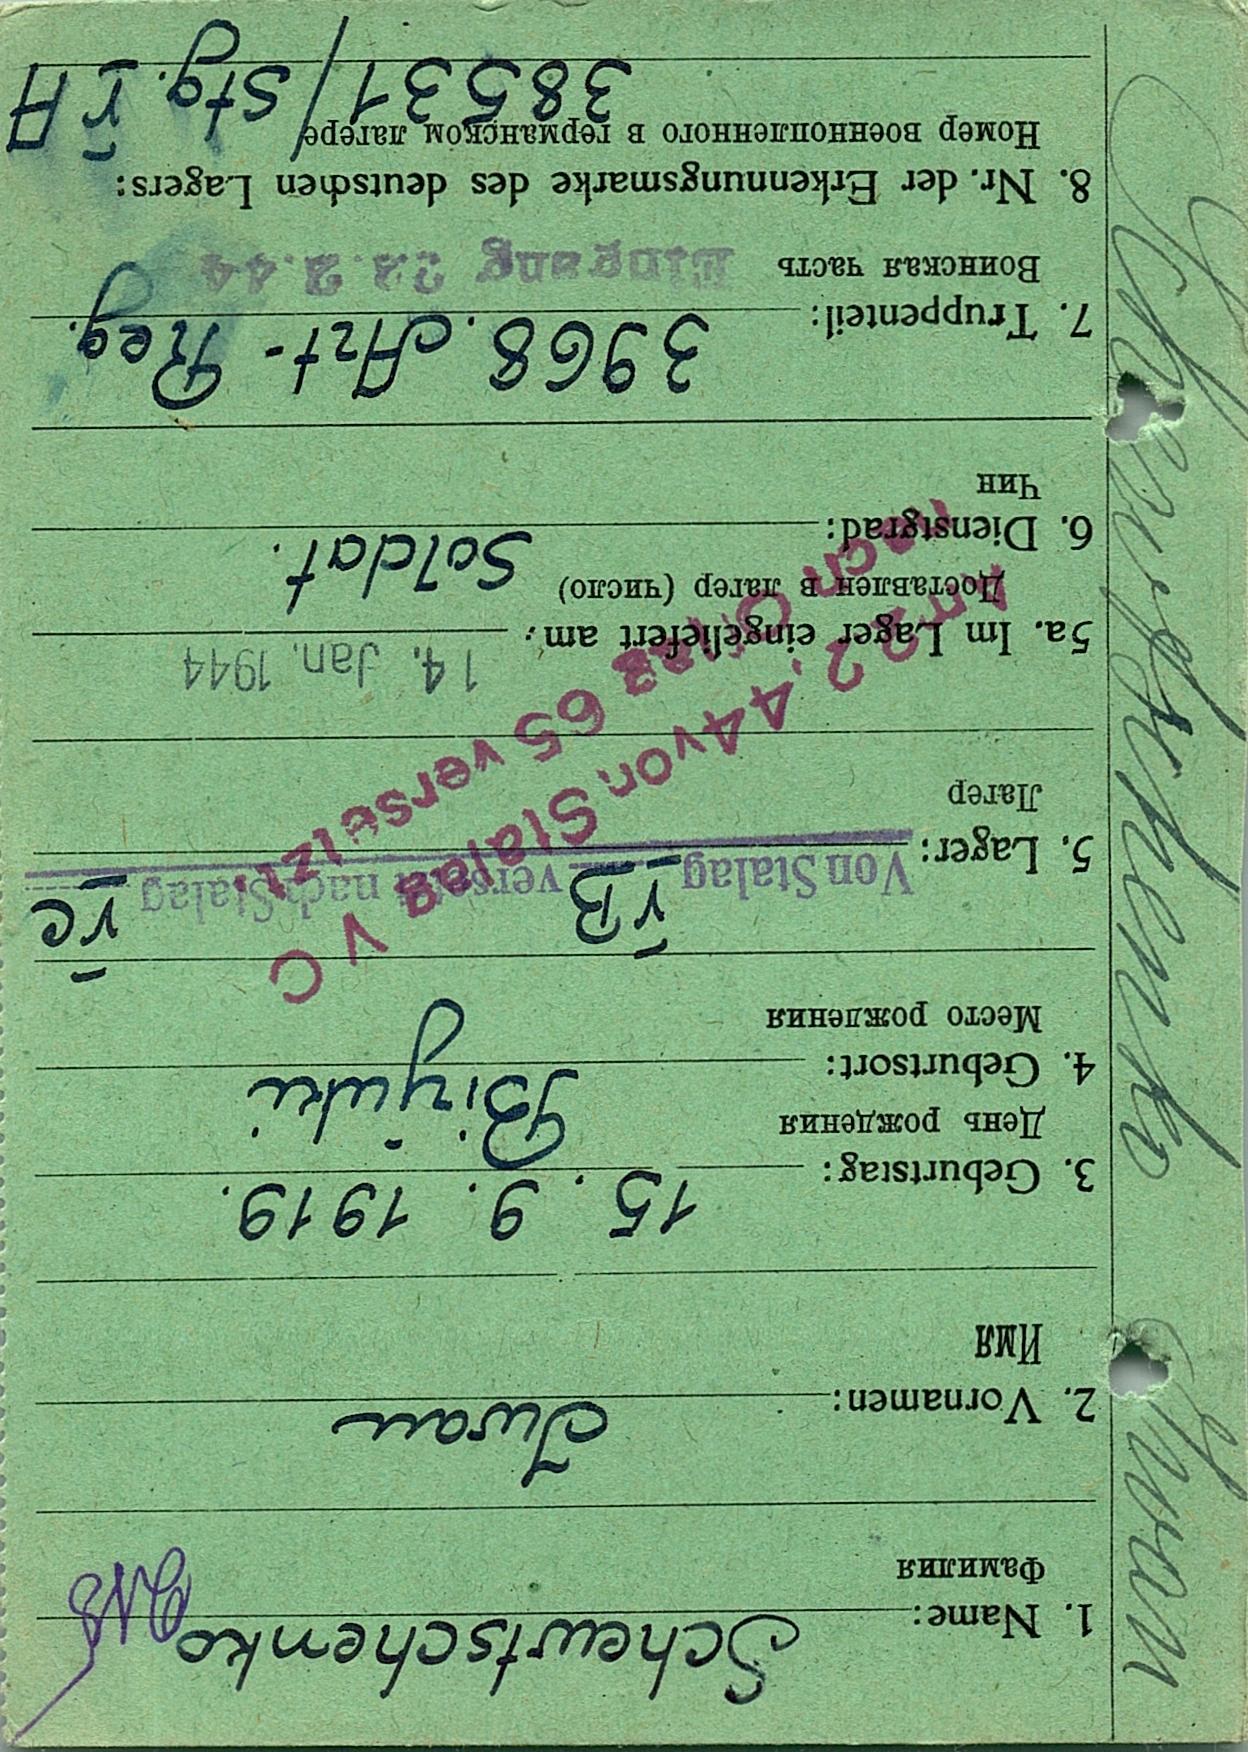 Schewtschenko Iwan
1. Name: Schewtschenko
Фамилия
2. Vornamen: Iwan
Имя
3. Geburtstag: 15. 9. 1919.
День рождения
4. Geburtsort: Birjuki
Место рождения
5. Lager: Von Stalag VB versetzt nach Stalag VC
Лагер
Am 2.44 von Stalag VC
nach Oflag 65 versetzt
5a. Im Lager eingeliefert am: 14. Jan. 1944
Доставлен в лагер (число)
6. Dienstgrad: Soldat.
Чин
7. Truppenteil: 3968. Art-Reg.
Воинская часть Eingang 23.2.44
8. Nr. der Erkennungsmarke des deutschen Lagers:
Номер военнопленного в германском лагере
38531/Stg. VA